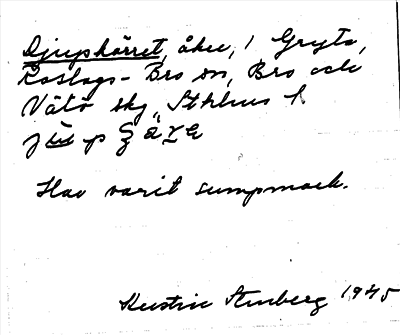 Djupkärret, åker, i Gryta,
Roslags-Bro sn, Bro och
Vätö skg, Sthlms l.
Har varit sumpmark.
Kerstin Stenberg 1945